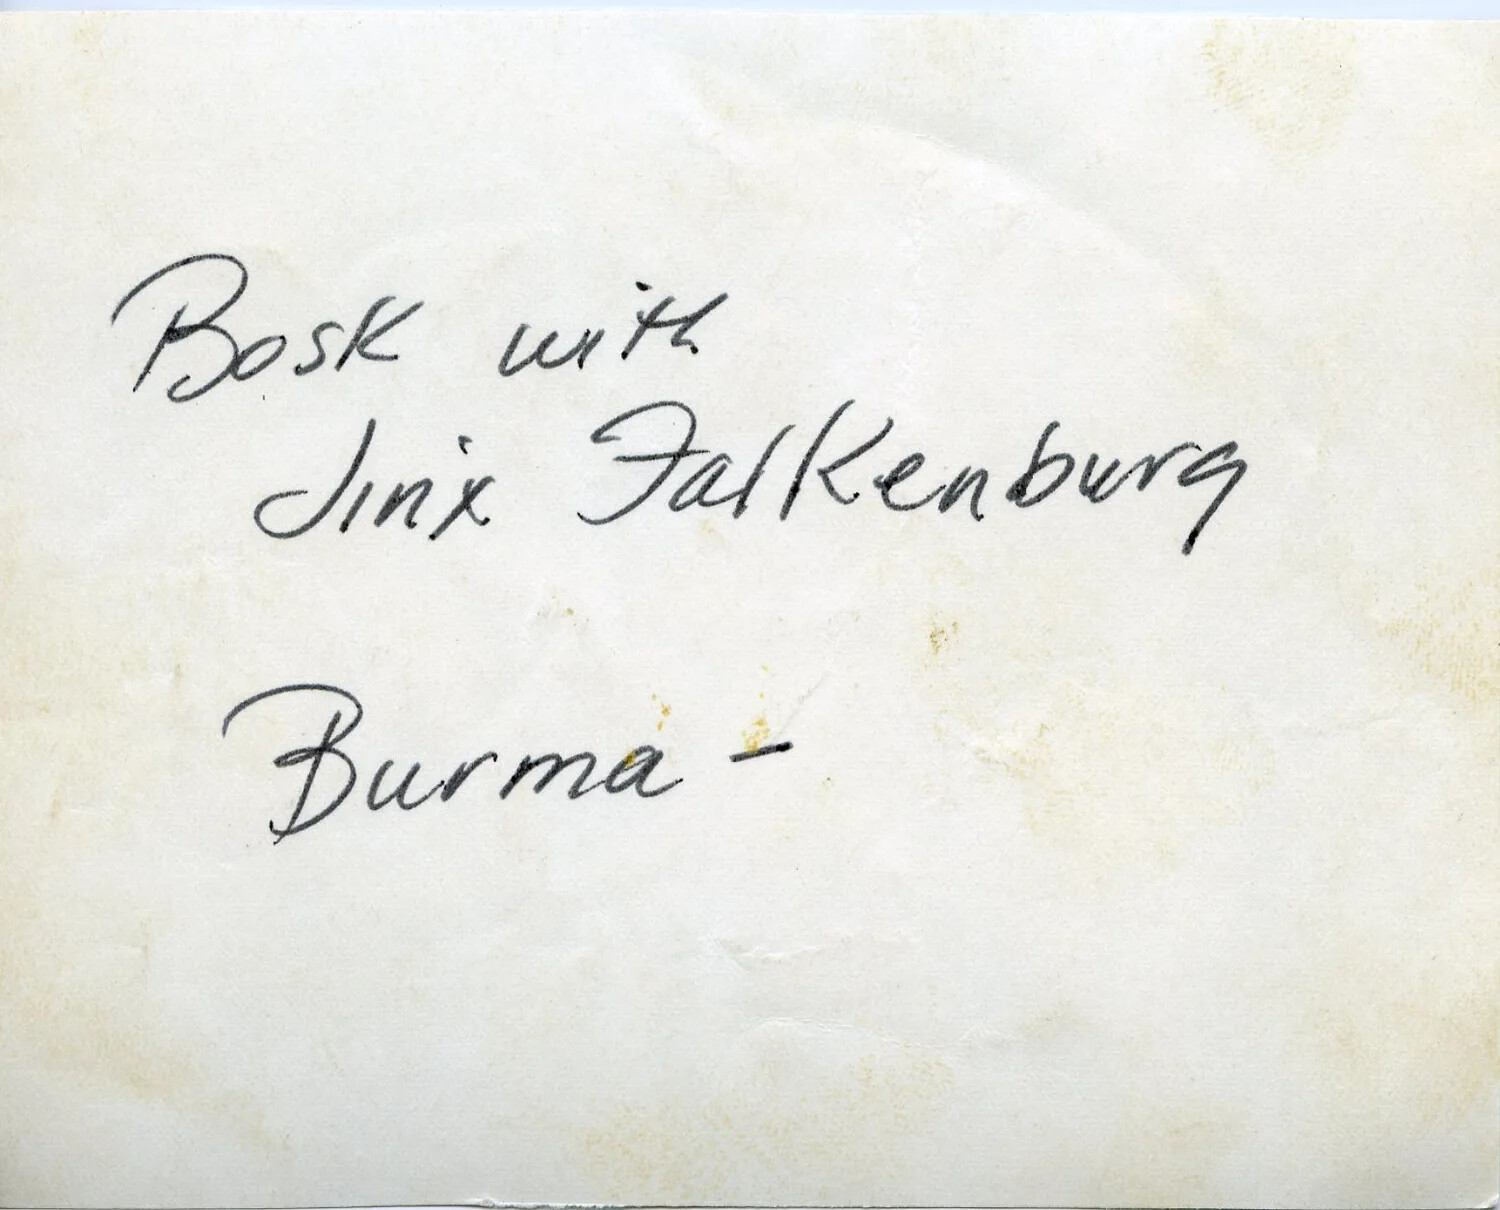 Bosk with
Jinx Falkenburg
Burma -